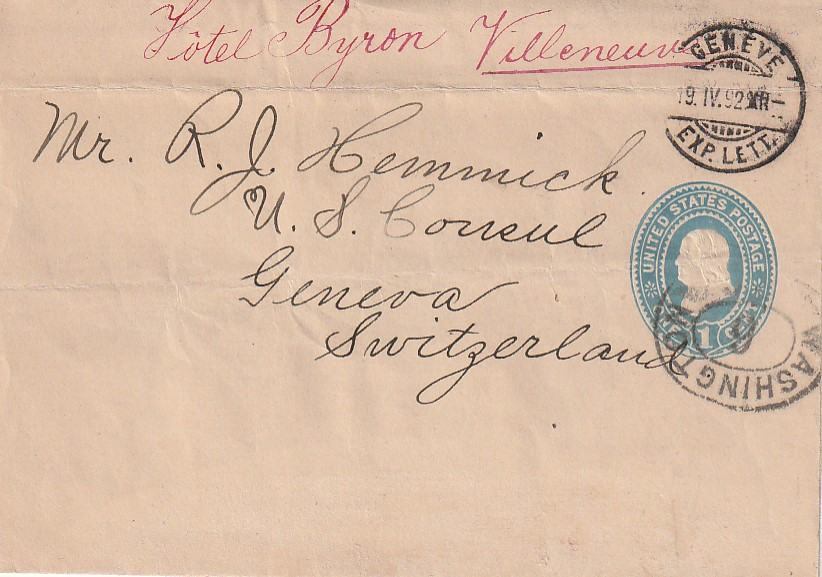 Hôtel Byron Villeneuve
GENÈVE
19. IV. 92
EXP. LETT.
Mr. R. J. Hemmick
U. S. Consul
Geneva
Switzerland
UNITED STATES POSTAGE
1
WASHINGT